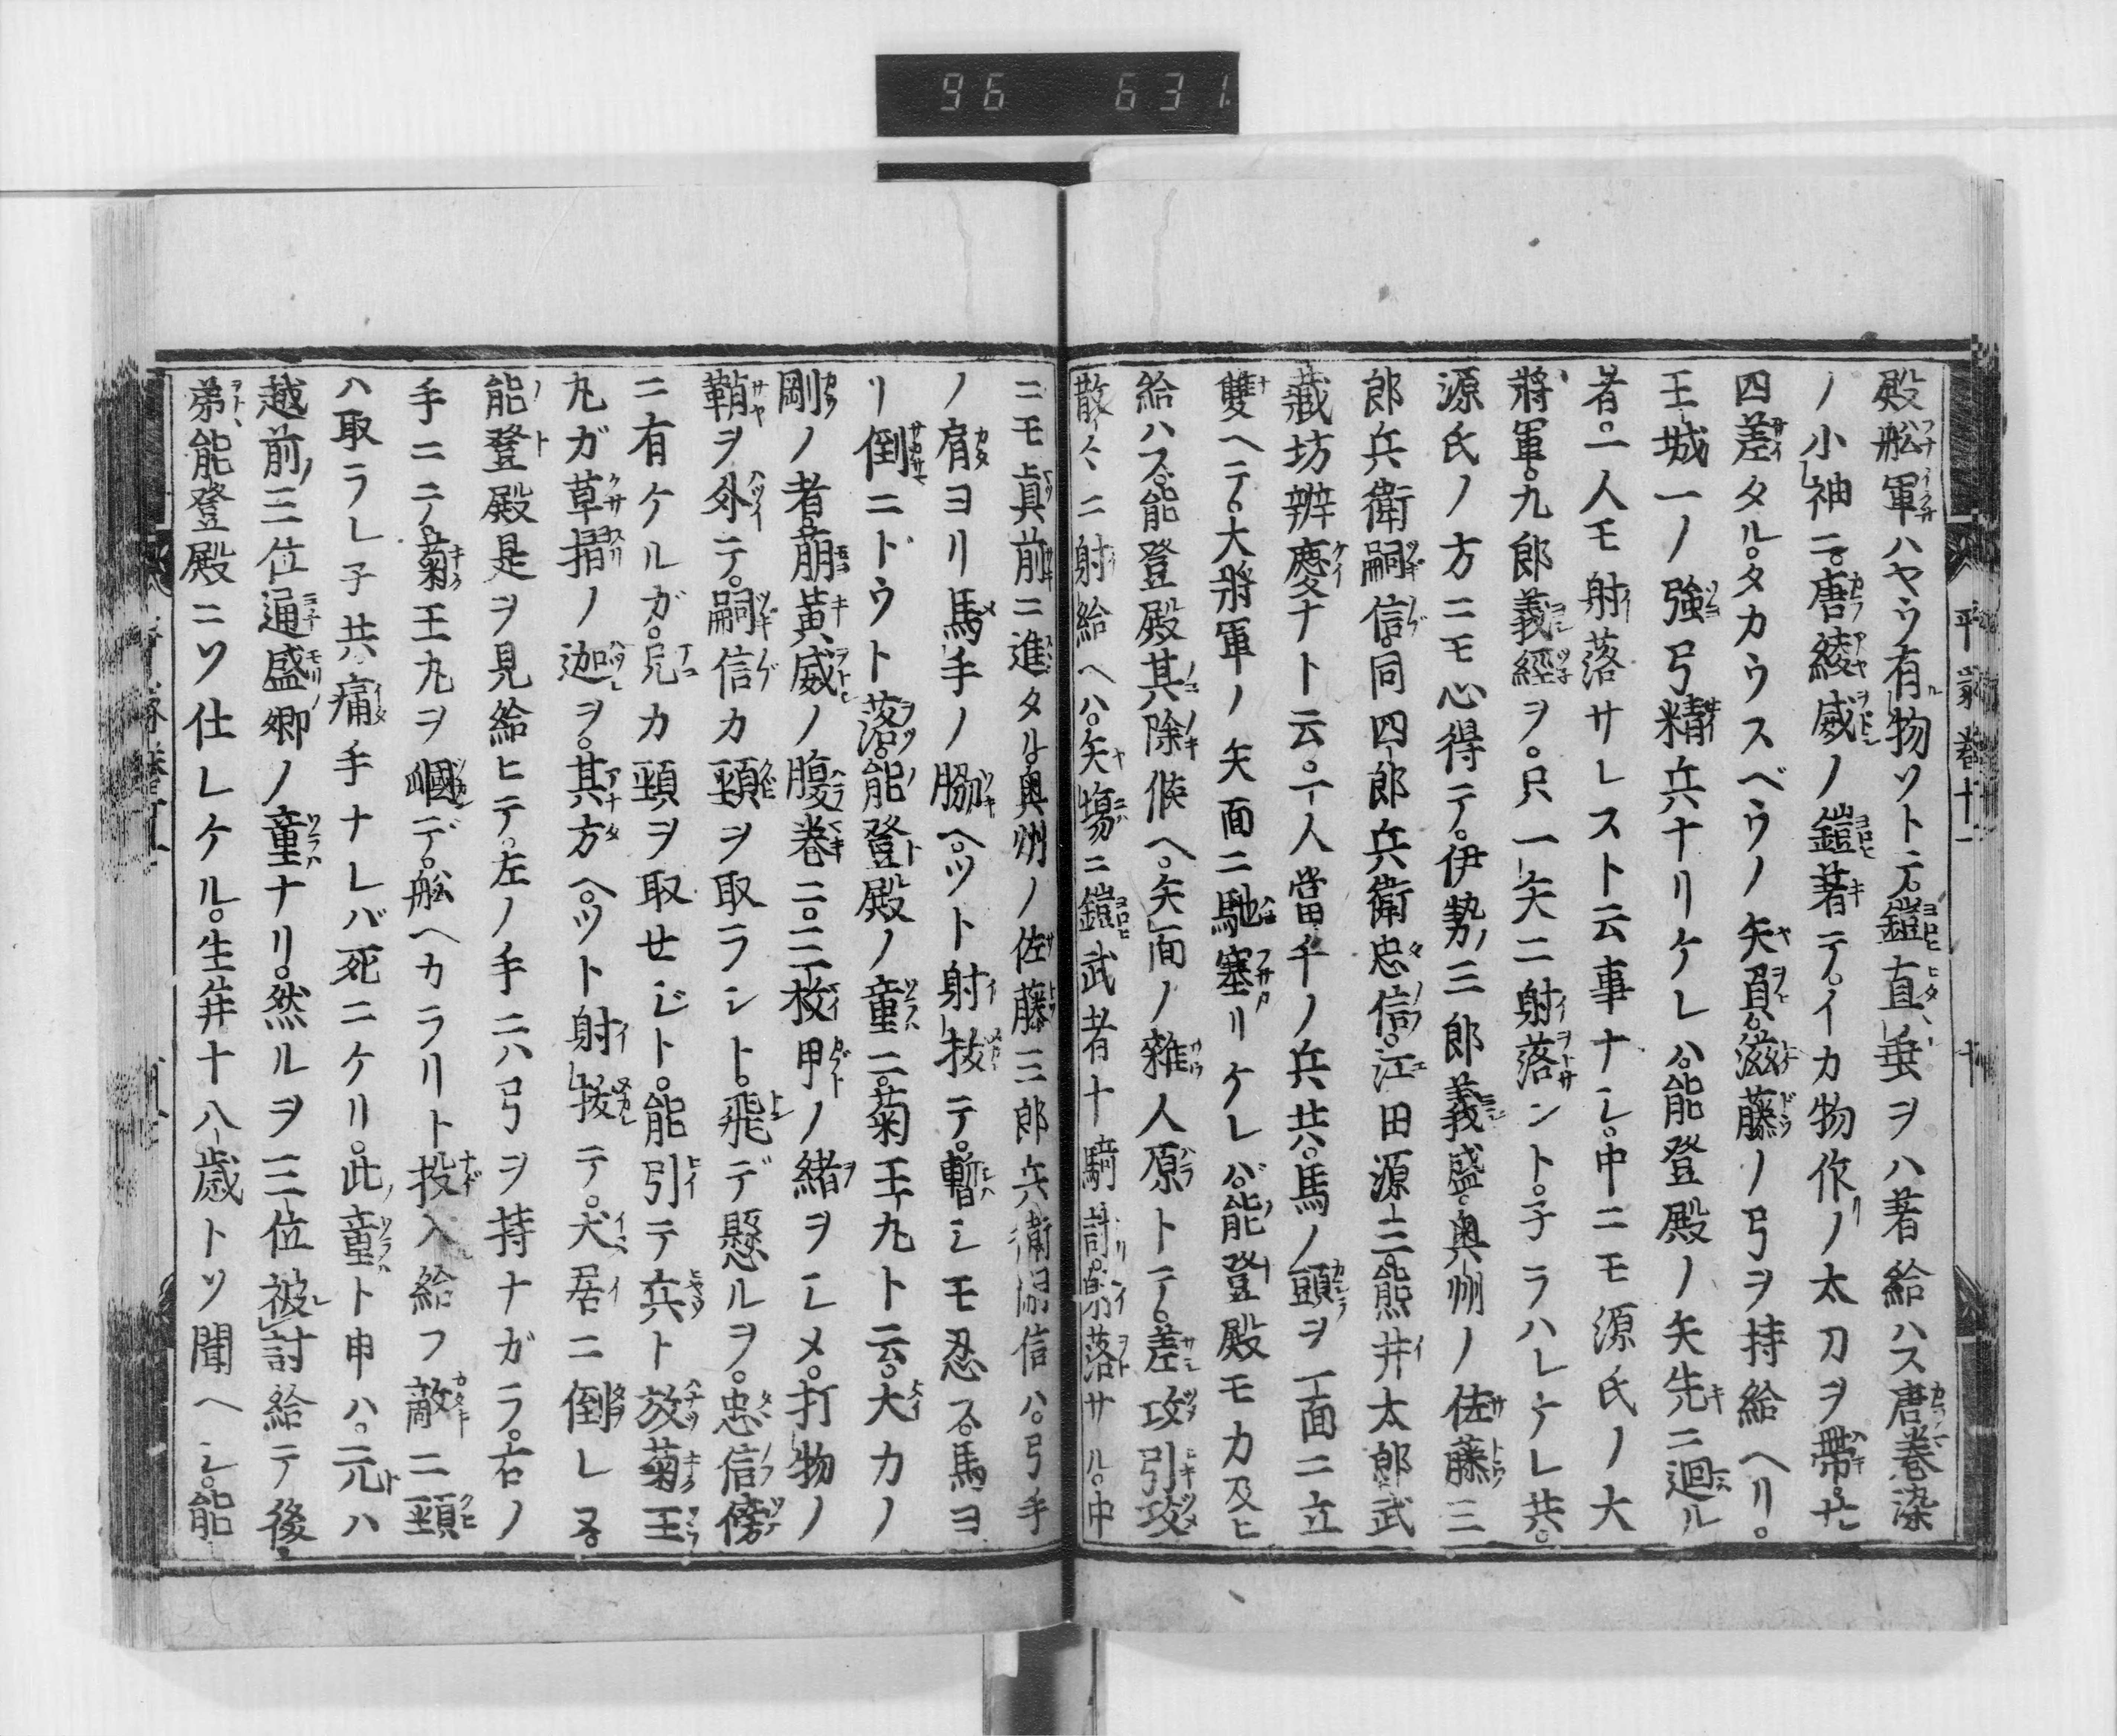 96 631
平家巻十一 十
殿舩軍ハヤウ有物ソトテ。鎧直垂ヲハ著給ハス唐巻染
ノ小袖ニ。唐綾威ノ鎧著テ。イカ物作ノ太刀ヲ帶。廿
四差タル。タカウスベウノ矢負。滋藤ノ弓ヲ持給ヘリ。
王城一ノ強弓精兵ナリケレハ。能登殿ノ矢先ニ廻ル
者。一人モ射落サレスト云事ナシ。中ニモ源氏ノ大
將軍。九郎義經ヲ。只一矢ニ射落ント。子ラハレケレ共。
源氏ノ方ニモ心得テ。伊勢三郎義盛。奥州ノ佐藤三
郎兵衛嗣信。同四郎兵衛忠信。江田源三。熊井太郎武
藏坊辨慶ナト云。一人當千ノ兵共。馬ノ頭ヲ一面ニ立
雙ヘテ。大將軍ノ矢面ニ馳塞リケレバ。能登殿モ力及ヒ
給ハス。能登殿其除候ヘ。矢面ノ雜人原トテ。差攻引攻
散々ニ射給ヘハ。矢塲ニ鎧武者十騎計射落サル。中
ニモ眞前ニ進タル。奥州ノ佐藤三郎兵衛嗣信ハ。弓手
ノ肩ヨリ馬手ノ脇ヘ。ツト射抜テ。暫シモ忍ス。馬ヨ
リ倒ニトウト落。能登殿ノ童ニ。菊王丸ト云。大カノ
剛ノ者。萠黄威ノ腹巻ニ。三枚甲ノ緒ヲシメ。打物ノ
鞘ヲ外テ。嗣信カ頸ヲ取ラント。飛デ懸ルヲ。忠信傍
ニ有ケルガ。兄カ頸ヲ取セジト。能引テ兵ト放菊王
丸ガ草摺ノ迦ヲ。其方ヘ。ツト射抜テ。犬居ニ倒レヌ。
能登殿是ヲ見給ヒテ。左ノ手ニハ弓ヲ持ナガラ。右ノ
手ニテ。菊王丸ヲ𢹂デ。舩ヘカラリト投入給フ敵ニ頸
ハ取ラレ子共。痛手ナレバ死ニケリ。此童ト申ハ。元ハ
越前三位通盛卿ノ童ナリ。然ルヲ三位被討給テ後。
弟能登殿ニソ仕レケル。生年十八歳トソ聞ヘシ。能